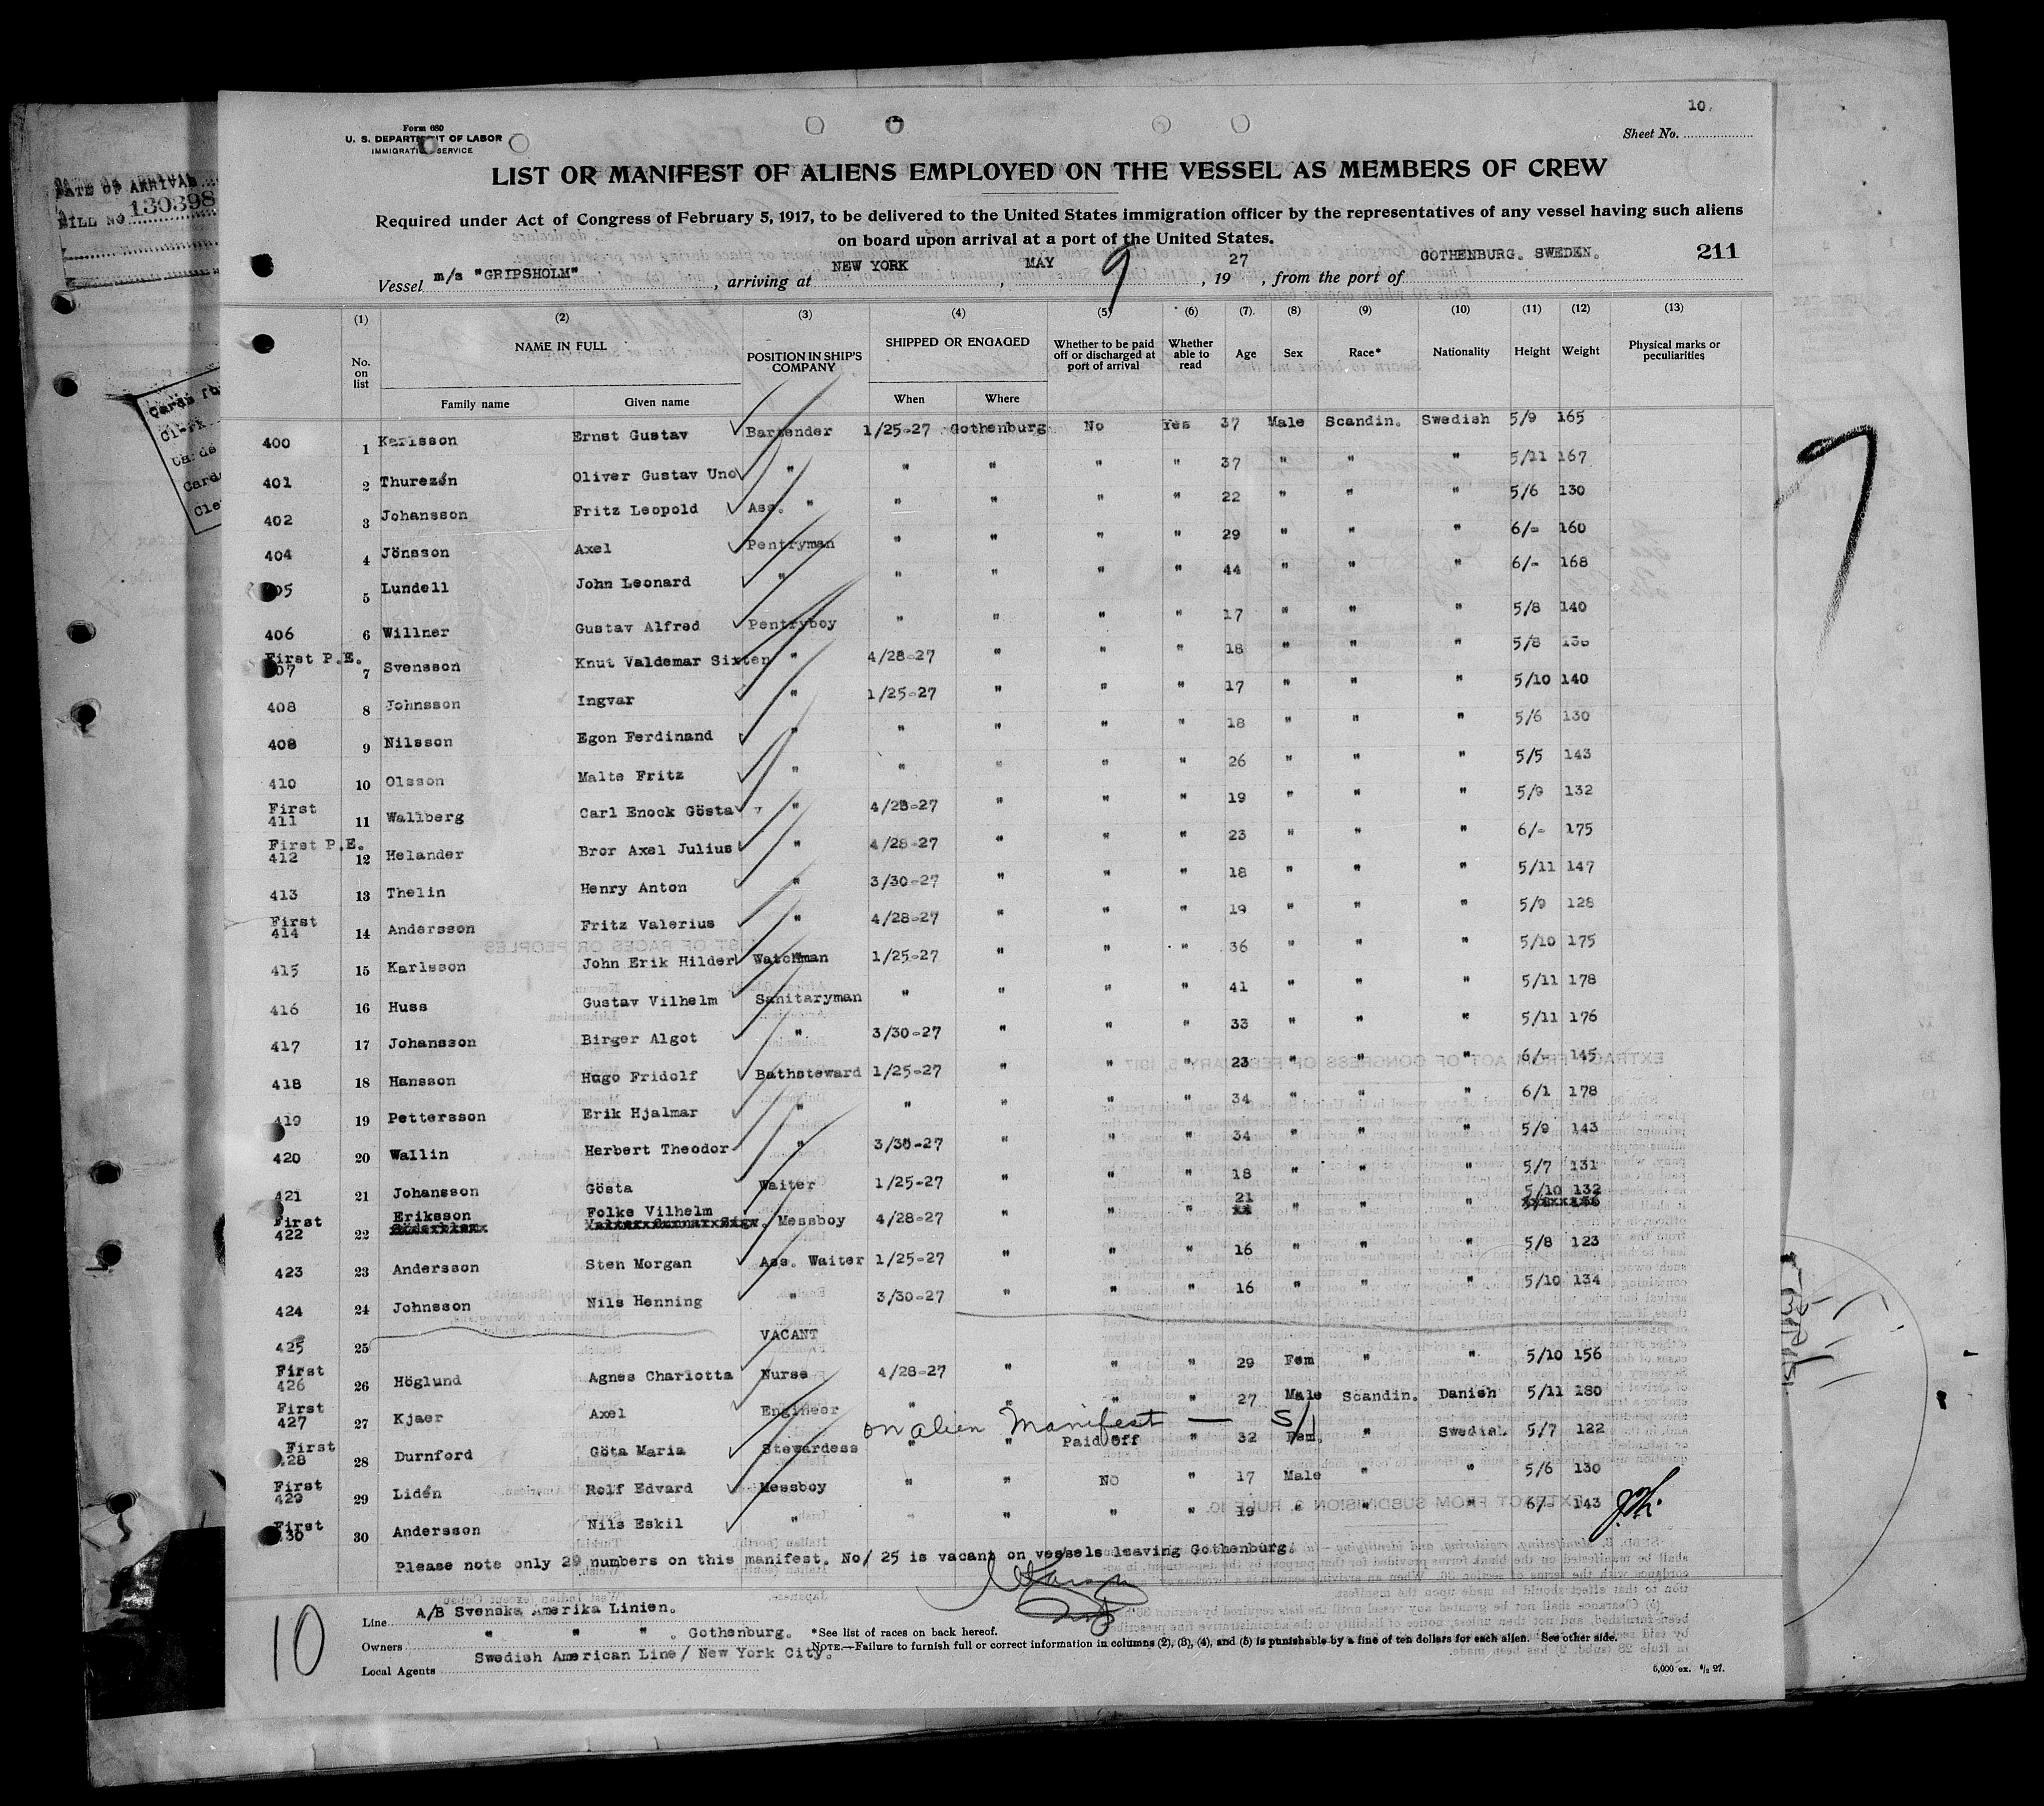 10.
Sheet No.
Form 680
U. S. DEPARTMENT OF LABOR
IMMIGRATION SERVICE
LIST OR MANIFEST OF ALIENS EMPLOYED ON THE VESSEL AS MEMBERS OF CREW
Required under Act of Congress of February 5, 1917, to be delivered to the United States immigration officer by the representatives of any vessel having such aliens
on board upon arrival at a port of the United States.
211
Vessel m/s "GRIPSHOLM", arriving at NEW YORK, MAY 9, 1927, from the port of GOTHENBURG. SWEDEN.
DATE OF ARRIVAL
BILL NO 130398
(1) (2) (3) (4) (5) (6) (7) (8) (9) (10) (11) (12) (13)
No. on list NAME IN FULL POSITION IN SHIP'S COMPANY SHIPPED OR ENGAGED Whether to be paid off or discharged at port of arrival Whether able to read Age Sex Race* Nationality Height Weight Physical marks or peculiarities
Family name Given name When Where
400 1 Karlsson Ernst Gustav Bartender 1/25-27 Gothenburg No Yes 37 Male Scandin. Swedish 5/9 165
401 2 Thurezón Oliver Gustav Uno " " " " " 37 " " " 5/11 167
402 3 Johansson Fritz Leopold Ass. " " " " " 22 " " " 5/6 130
404 4 Jönsson Axel Pentryman " " " " 29 " " " 6/- 160
405 5 Lundell John Leonard " " " " " 44 " " " 6/- 168
406 6 Willner Gustav Alfred Pentryboy " " " " 17 " " " 5/8 140
First P.E. 407 7 Svensson Knut Valdemar Sixten " 4/28-27 " " " 18 " " " 5/8
408 8 Johnsson Ingvar " 1/25-27 " " " 17 " " " 5/10 140
408 9 Nilsson Egon Ferdinand " " " " " 18 " " " 5/6 130
410 10 Olsson Malte Fritz " " " " " 26 " " " 5/5 143
First 411 11 Wallberg Carl Enock Gösta " 4/28-27 " " " 19 " " " 5/9 132
First P.E. 412 12 Helander Bror Axel Julius " 4/28-27 " " " 23 " " " 6/- 175
413 13 Thelin Henry Anton " 3/30-27 " " " 18 " " " 5/11 147
First 414 14 Andersson Fritz Valerius " 4/28-27 " " " 19 " " " 5/9 128
415 15 Karlsson John Erik Hilder Watchman 1/25-27 " " " 36 " " " 5/10 175
416 16 Huss Gustav Vilhelm Sanitaryman " " " " 41 " " " 5/11 178
417 17 Johansson Birger Algot " 3/30-27 " " " 33 " " " 5/11 176
418 18 Hansson Hugo Fridolf Bathsteward 1/25-27 " " " 23 " " " 6/- 145
419 19 Pettersson Erik Hjalmar " " " " " 34 " " " 6/1 178
420 20 Wallin Herbert Theodor " 3/30-27 " " " 34 " " " 5/9 143
421 21 Johansson Gösta Waiter 1/25-27 " " " 18 " " " 5/7 131
First 422 22 Eriksson Folke Vilhelm Messboy 4/28-27 " " " 21 " " " 5/10 132
423 23 Andersson Sten Morgan Ass. Waiter 1/25-27 " " " 16 " " " 5/8 123
424 24 Johnsson Nils Henning " 3/30-27 " " " 16 " " " 5/10 134
425 25 VACANT
First 426 26 Höglund Agnes Charlotta Nurse 4/28-27 " " " 29 Fem " " 5/10 156
First 427 27 Kjaer Axel Engineer " " " " 27 Male Scandin. Danish 5/11 180
on alien Manifest — S/
First 428 28 Durnford Göta Maria Stewardess " " Paid off " 32 Fem. " Swedish 5/7 122
First 429 29 Lidén Rolf Edvard Messboy " " No " 17 Male " " 5/6 130
First 430 30 Andersson Nils Eskil " " " " " 19 " " " 6/- 143
Please note only 29 numbers on this manifest. No/ 25 is vacant on vessels leaving Gothenburg.
10
Line A/B Svenska Amerika Linien.
Owners " " " . Gothenburg.
Local Agents Swedish American Line/ New York City.
*See list of races on back hereof.
NOTE.—Failure to furnish full or correct information in columns (2), (3), (4), and (5) is punishable by a fine of ten dollars for each alien. See other side.
5,000 ex. 4/2 27.